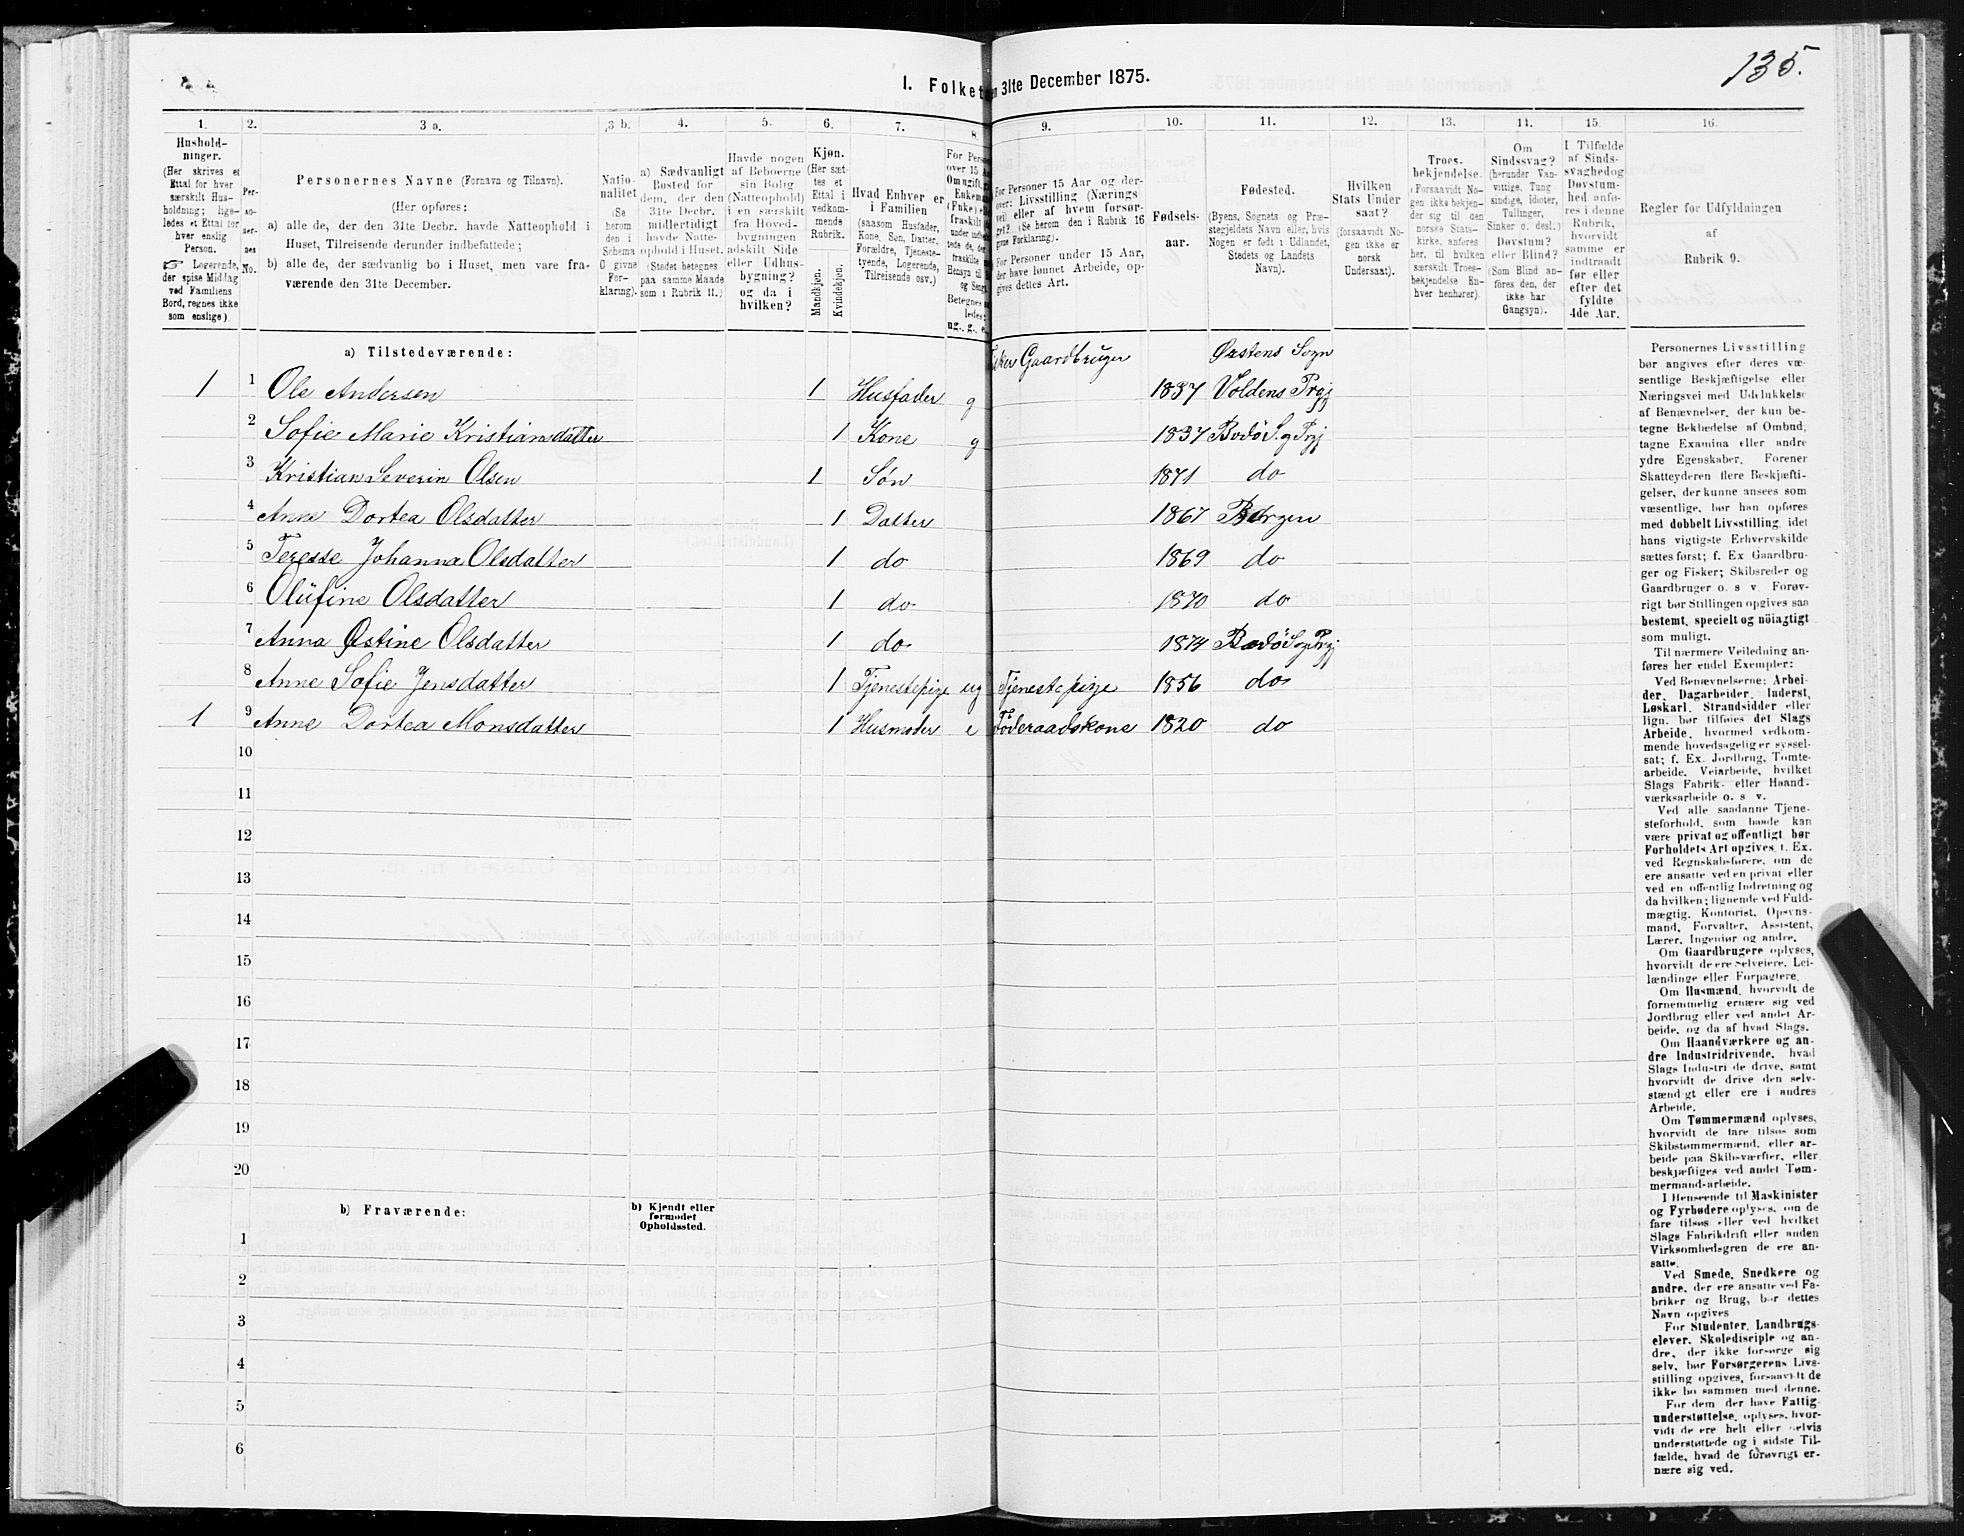 135.
I. Folket
en 31te December 1875.
1. 2. 3 a. 3 b. 4. 5. 6. 7. 8. 9. 10. 11. 12. 13. 14. 15. 16.
Hushold-
ninger.
(Her skrives et
Ettal for hver
særskilt Hus-
holdning; lige-
ledes et Ettal for
hver enslig
Person.
☞ Logerende,
der spise Middag
ved Familiens
Bord, regnes ikke
som enslige).
Per-
so-
ner-
nes
No.
Personernes Navne (Fornavn og Tilnavn).
(Her opføres:
a) alle de, der den 31te Decbr. havde Natteophold i
Huset, Tilreisende derunder indbefattede;
b) alle de, der sædvanlig bo i Huset, men vare fra-
værende den 31te December.
Natio-
nalitet
(Se
herom
den i
Schema
C givne
For-
klaring).
a) Sædvanligt
Bosted for
dem, der den
31te Decbr.
midlertidigt
havde Natte-
ophold i Huset.
(Stedet betegnes
paa samme Maade
som i Rubrik 11.)
Havde nogen
af Beboerne
sin Bolig
(Natteophold)
i en særskilt
fra Hoved-
bygningen
adskilt Side
eller Udhus-
bygning?
og da i
hvilken?
Kjøn.
(Her sæt-
tes et
Ettal i
vedkom-
mende
Rubrik.
Mandkjøn.
Kvindekjøn.
Hvad Enhver er
i Familien
(saasom Husfader,
Kone, Søn, Datter,
Forældre, Tjeneste-
tyende, Logerende,
Tilreisende osv.)
For Personer 15 Aar og der-
over: Livsstilling (Nærings-
vei) eller af hvem forsør-
get? (Se herom den i Rubrik 16
givne Forklaring).
For Personer under 15 Aar,
der have lønnet Arbeide, op-
gives dettes Art.
Fødsels-
aar.
Fødested.
(Byens, Sognets og Præ-
stegjeldets Navn eller, hvis
Nogen er født i Udlandet,
Stedets og Landets
Navn).
Hvilken
Stats Under
saat?
(forsaavidt No-
gen ikke er
norsk
Undersaat).
Troes-
bekjendelse.
(Forsaavidt No-
gen ikke bekjen-
der sig til den
norske Stats-
kirke, anføres
her, til hvilken
særskilt Troes-
bekjendelse En-
hver henhører).
Om
Sindssvag?
(herunder Van-
vittige, Tung
sindige, Idioter,
Tullinger,
Sinker o. desl.)
Døvstum?
eller Blind?
(Som Blind an-
føres den, der
ikke har
Gangsyn).
I Tilfælde
af Sinds-
svaghed og
Døvstum-
hed anfø-
res i denne
Rubrik,
hvorvidt
samme er
indtraadt
før eller
efter det
fyldte
4de Aar.
Regler for Udfyldningen
af
Rubrik 9.
a) Tilstedeværende:
Fisker Gaardbruger Østens Sogn
1 1 Ole Andersen 1 Husfader g 1837 Voldens Prgj
2 Sofie Marie Kristiansdatter 1 Kone g 1837 Bodö S. og Prgj
3 Kristian Severin Olsen 1 Søn 1871 do
4 Anne Dortea Olsdatter 1 Datter 1867 Bergen
5 Teresse Johanna Olsdatter 1 do 1869 do
6 Olüfine Olsdatter 1 do 1870 do
7 Anna Østine Olsdatter 1 do 1874 Bodö S. og Prgj
8 Anne Sofie Jensdatter 1 Tjenestepige ug Tjenestepige 1856 do
1 9 Anne Dortea Monsdatter 1 Husmoder e Föderaadskone 1820 do
10
11
12
13
14
15
16
17
18
19
20
b) Fraværende:
b) Kjendt eller
formodet
Opholdssted.
1
2
3
4
5
6
Personernes Livsstilling
bør angives efter deres væ-
sentlige Beskjæftigelse eller
Næringsvei med Udelukkelse
af Benævnelser, der kun be-
tegne Bekledelse af Ombud,
tagne Examina eller andre
ydre Egenskaber. Forener
Skatteyderen flere Beskjæfti-
gelser, der kunne ansees som
væsentlige, bør han opføres
med dobbelt Livsstilling, idet
hans vigtigste Erhvervskilde
sættes først; f. Ex Gaardbru-
ger og Fisker; Skibsreder og
Gaardbruger o. s v Forøv-
rigt bør Stillingen opgives saa
bestemt, specielt og nöiagtigt
som muligt.
Til nærmere Veiledning an-
føres her endel Exempler:
Ved Benævnelserne: Arbei-
der, Dagarbeider, Inderst,
Løskarl, Strandsidder eller
lign. bør tilføies det Slags
Arbeide, hvormed vedkom-
mende hovedsagelig er syssel-
sat; f. Ex. Jordbrug, Tomte-
arbeide, Veiarbeide, hvilket
Slags Fabrik- eller Haand-
værksarbeide o. s v.
Ved alle saadanne Tjene-
steforhold, som baade kan
være privat og offentligt, bør
Forholdets Art opgives, t. Ex.
ved Regnskabsførere, om de
ere ansatte ved en privat eller
ved en offentlig Indretning og
da hvilken; lignende ved Fuld-
mægtig, Kontorist, Opsyns-
mand, Forvalter, Assistent,
Lærer, Ingeniør og andre.
Om Gaardbrugere oplyses,
hvorvidt de ere Selveiere, Lei-
lændinge eller Forpagtere.
Om Husmænd, hvorvidt de
fornemmelig ernære sig ved
Jordbrug eller ved andet Ar-
beide, og da af hvad Slags.
Om Haandværkere og an-
dre Industridrivende, hvad
Slags Industri de drive, samt
hvorvidt de drive den selv-
stændigt eller ere i andres
Arbeide.
Om Tømmermænd oplyses,
hvorvidt de fare tilsøs som
Skibstømmermænd, eller ar-
beide paa Skibsværfter, eller
beskjæftiges ved andet Tøm-
mermand-arbeide.
I Henseende til Maskinister
og Fyrbødere oplyses, om de
fare tilsøs eller ved hvilket
Slags Fabrikdrift eller anden
Virksomhedsgren de ere an-
satte.
Ved Smede, Snedkere og
andre, der ere ansatte ved Fa-
briker og Brug, bør dettes
Navn opgives
For Studenter, Landbrugs-
elever, Skoledisciple og an-
dre, der ikke forsørge sig
selv, bør Forsørgerens Livs-
stilling opgives, forsaavidt de
ikke bo sammen med denne.
For dem, der have Fattig-
understøttelse, oplyses, hvor-
vidt de ere helt eller delvis
understøttede og i sidste Til-
fælde, hvad de forøvrigt er-
nære sig ved.